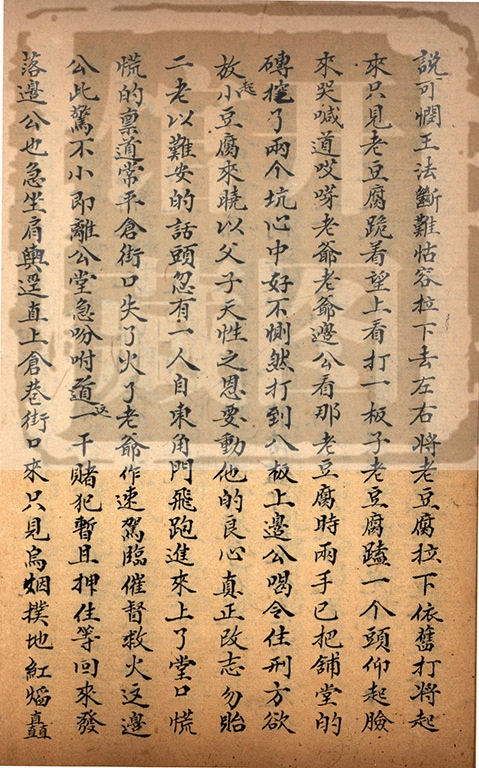 說可憫王法斷難怙容拉下去左右將老豆腐拉下依舊打將起
來只見老豆腐跪着望上看打一板子老豆腐磕一个頭仰起臉
來哭喊道哎呀老爺老爺邊公看那老豆腐時兩手已把舖堂的
磚挖了兩个坑心中好不惻然打到八板上邊公喝令住刑方欲
放起小豆腐來曉以父子天性之恩要動他的良心真正改志勿貽
二老以難安的話頭忽有一人自東角門飛跑進來上了堂口慌
慌的稟道常平倉街口失了火了老爺作速駕臨催督救火这邊
公此驚不小即離公堂急吩咐道一干賭犯暫且押住等回來發
落邊公也急坐肩輿逕直上倉巷街口來只見烏烟撲地紅熖矗